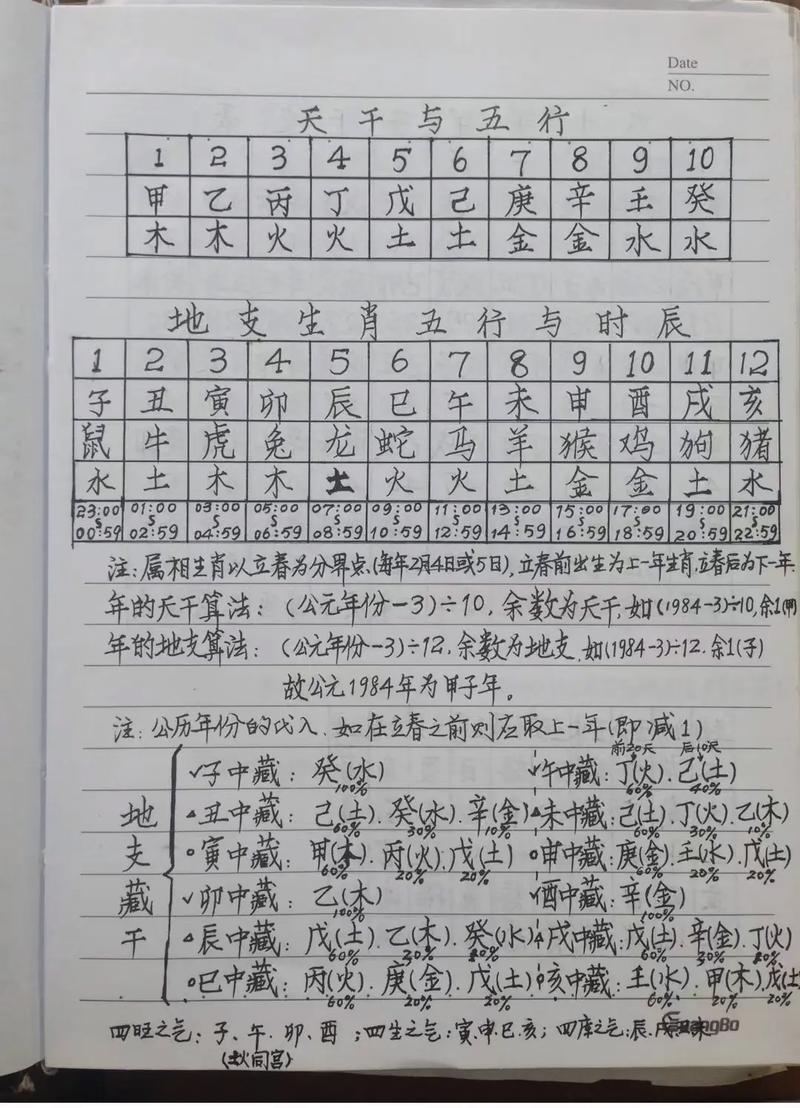 Date
NO.
天干与五行
1 2 3 4 5 6 7 8 9 10
甲 乙 丙 丁 戊 己 庚 辛 壬 癸
木 木 火 火 土 土 金 金 水 水
地支生肖五行与时辰
1 2 3 4 5 6 7 8 9 10 11 12
子 丑 寅 卯 辰 巳 午 未 申 酉 戌 亥
鼠 牛 虎 兔 龙 蛇 马 羊 猴 鸡 狗 猪
水 土 木 木 土 火 火 土 金 金 土 水
23:00 01:00 03:00 05:00 07:00 09:00 11:00 13:00 15:00 17:00 19:00 21:00
00:59 02:59 04:59 06:59 08:59 10:59 12:59 14:59 16:59 18:59 20:59 22:59
注:属相生肖以立春为分界点,(每年2月4日或5日),立春前出生为上一年生肖,立春后为下一年.
年的天干算法:(公元年份-3)÷10,余数为天干,如(1984-3)÷10,余1(甲)
年的地支算法:(公元年份-3)÷12,余数为地支,如(1984-3)÷12.余1(子)
故公元1984年为甲子年。
注:公历年份的代入、如在立春之前则应取上一年(即减1)
前20天 后10天
子中藏:癸(水) 午中藏:丁(火).己(土)
100% 60% 40%
丑中藏:己(土).癸(水).辛(金) 未中藏:己(土).丁(火).乙(木)
60% 30% 10% 60% 30% 10%
地支藏干
寅中藏:甲(木).丙(火).戊(土) 申中藏:庚(金).壬(水).戊(土)
60% 20% 20% 60% 20% 20%
卯中藏:乙(木) 酉中藏:辛(金)
100% 100%
辰中藏:戊(土).乙(木).癸(水) 戌中藏:戊(土).辛(金).丁(火)
60% 30% 60% 30%
巳中藏:丙(火).庚(金).戊(土) 亥中藏:壬(水).甲(木).戊(土
60% 20% 20% 60% 20% 20%
四旺之气:子、午、卯、酉;四生之气:寅.申.巳.亥;四库之气:辰.戌.丑.未
(火同宫)